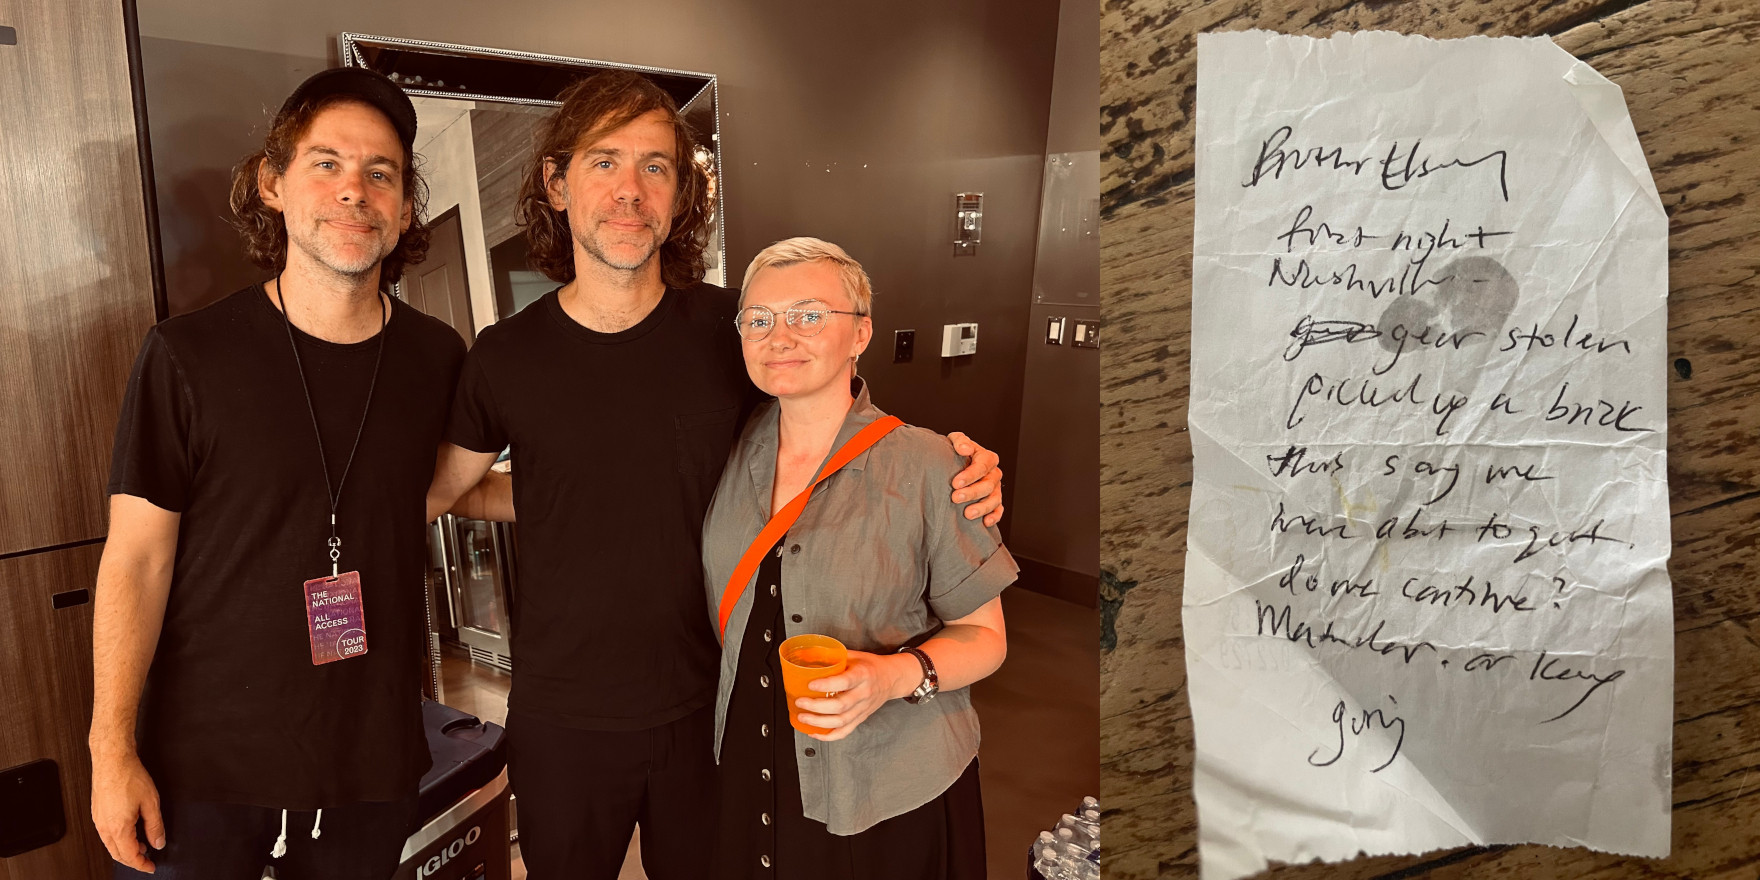 THE
NATIONAL
ALL
ACCESS
TOUR
2023
IGLOO
Brother Elsey
first night
Nashville -
gear stolen
picked up a brick
say we
were about to quit.
do we continue?
or keep
going